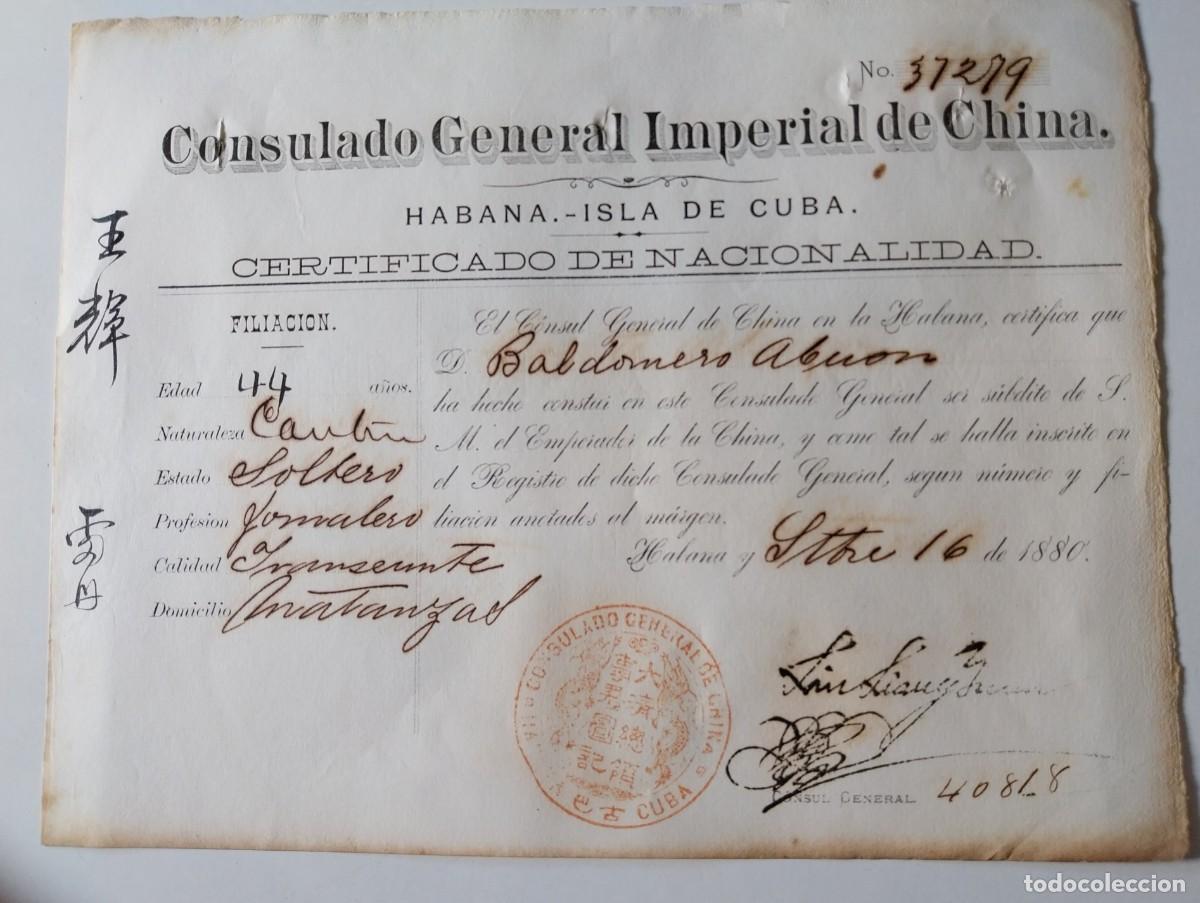 No. 37279
Consulado General Imperial de China.
HABANA.-ISLA DE CUBA.
CERTIFICADO DE NACIONALIDAD.
王輝
FILIACION.
Edad 44 años.
Naturaleza Canton
Estado Soltero
Profesion Jornalero
Calidad Transeunte
Domicilio Matanzas
El Cónsul General de China en la Habana, certifica que
D. Baldomero Abuon
ha hecho constar en este Consulado General ser súbdito de S.
M. el Emperador de la China, y como tal se halla inscrito en
el Registro de dicho Consulado General, segun número y fi-
liacion anotados al márgen.
Habana y Stbre 16 de 1880.
CONSULADO GENERAL DE CHINA
CUBA
大清總領
事署圖記
古巴
Lin Liang Yuan
CONSUL GENERAL
40818
todocoleccion